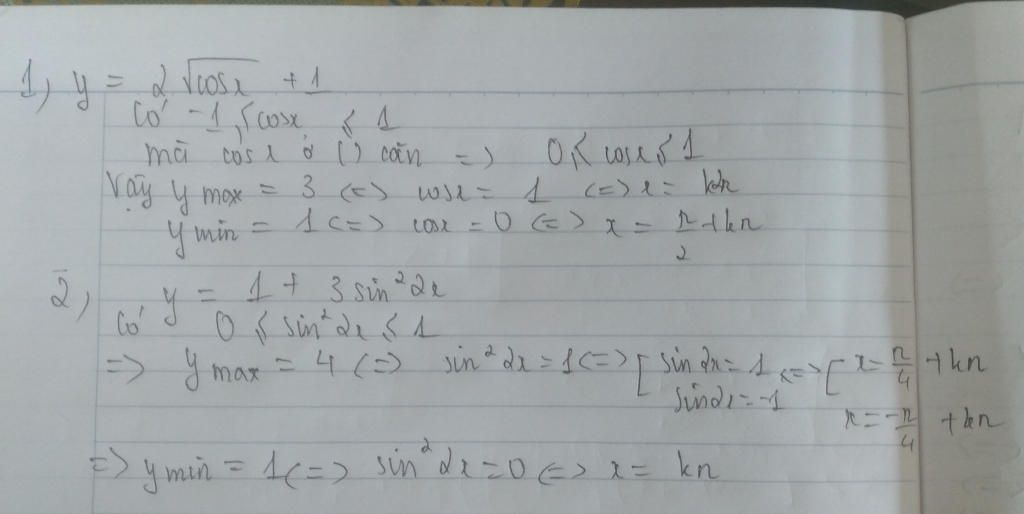 1, y = 2√cosx + 1
Có -1 ≤ cosx ≤ 1
mà cosx ở () căn => 0 ≤ cosx ≤ 1
Vậy y max = 3 <=> cosx = 1 <=> x = kπ
y min = 1 <=> cosx = 0 <=> x = π/2 + kπ
2, y = 1 + 3sin²2x
Có 0 ≤ sin²2x ≤ 1
=> y max = 4 <=> sin²2x = 1 <=> [ sin2x = 1 <=> [ x = π/4 + kπ
sin2x = -1 x = -π/4 + kπ
=> y min = 1 <=> sin²2x = 0 <=> x = kπ